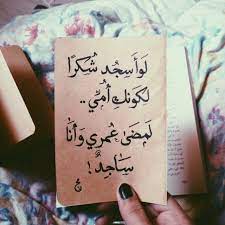 لَوأَسجُد شُكرًا
لكَونك أُمِّي ..
لَمضَىٰ عُمري وَأنَا
سَاجِدٌ !